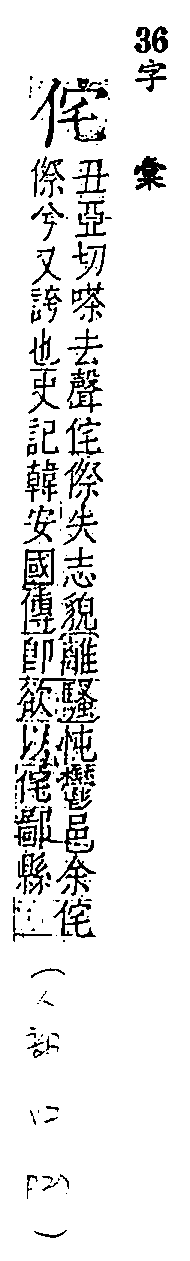 36字彙
侘
丑亞切嗏去聲侘傺失志貌離騷忳鬱邑余侘
傺兮又誇也史記韓安國傳卽欲以侘鄙縣
（人部